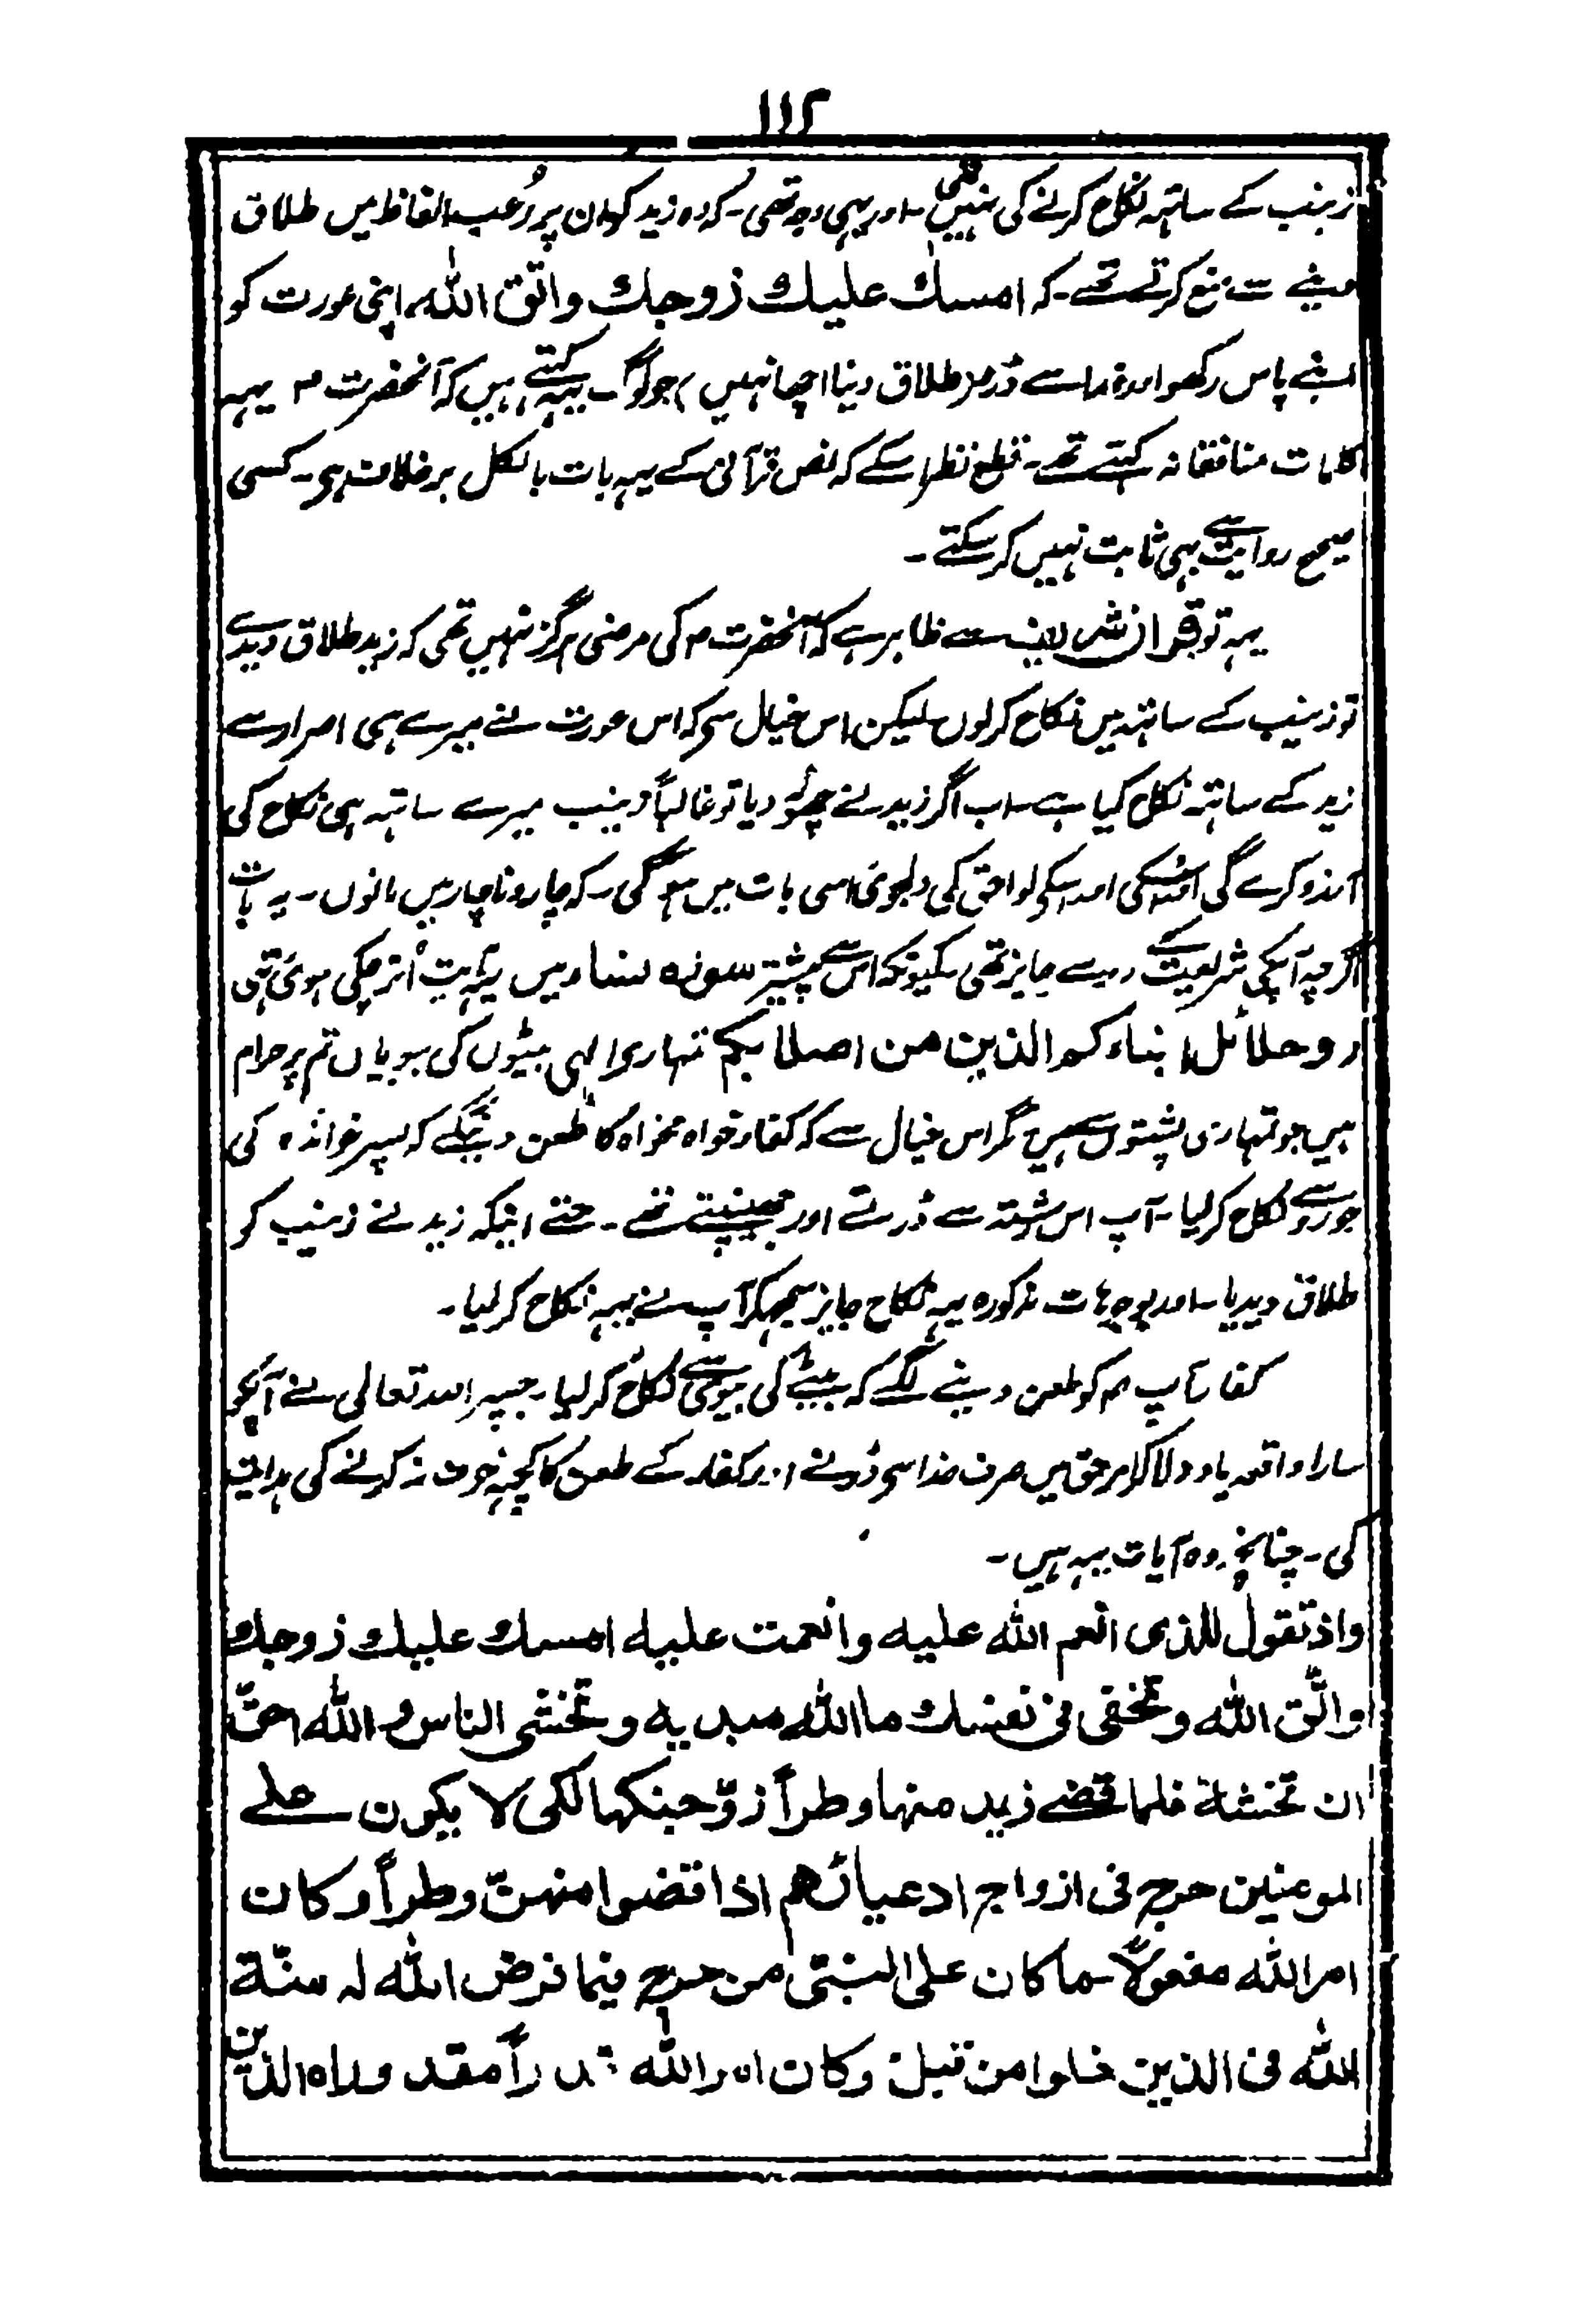 ۱۱۲
زینب کے ساتہہ نکاح کرنے کی نہیں تھی۔ اور یہی وجہ تھی۔ کہ وہ زید کو ان پر رُعب الفاظ میں طلاق
دینے سے منع کرتے تھے۔ کہ امسك عليك زوجك واتق الله، اپنی عورت کو
اپنے پاس رکھو اور خدا سے ڈرو طلاق دینا اچھا نہیں) جو لوگ یہہ کہتے ہیں کہ آنحضرت م یہہ
کلمات منافقانہ کہتے تھے۔ قطع نظر اسکے کہ نص قرآنی کے یہہ بات بالکل برخلاف ہی۔ کسی
صحیح روایت سے بہی ثابت نہیں کر سکتے۔
یہہ تو قران شریف سے ظاہر ہے کہ آنحضرت م کی مرضی ہرگز نہیں تھی کہ زید طلاق دیدے
تو زینب کے ساتہہ میں نکاح کرلوں لیکن اس خیال سی کہ اس عورت نے میرے ہی اصرار سے
زید کے ساتہہ نکاح کیا ہے۔ اب اگر زید نے چھوڑ دیا تو غالباً زینب میرے ساتہہ ہی نکاح کی
آرزو کرے گی اور اُسکی اور اسکی لواحق کی دلجوئی اسی بات میں ہوگی۔ کہ چار و ناچار میں مانوں۔ یہ بات
اگرچہ آپکی شریعت کے رو سے جایز تھی۔ کیونکہ اس سے پیشتر سورہ نساء میں یہ آیت اُتر چکی ہوئی تہی
(وحلائل ابناءكم الذين من اصلابكم تمہاری اُنہی بیٹوں کی بیویاں تم پر حرام
ہیں جو تمہاری پشتوں سے ہیں) مگر اس خیال سے کہ کفار خواہ مخواہ کا طعن دینگے کہ پسر خواندہ کی
جورو سے نکاح کر لیا۔ آپ اس رشتہ سے ڈرتے اور جھینپتے تھے۔ حتے اینکہ زید نے زینب کو
طلاق دیدیا۔ اور بوجوہات مذکورہ یہہ نکاح جایز سمجھکر آپ نے یہہ نکاح کر لیا۔
کفار آپ م کو طعن دینے لگے کہ بیٹے کی بیوی سے نکاح کر لیا۔ جسپر اللہ تعالی نے آپکو
سارا واقعہ یاد دلا کر امر حق میں صرف خدا سی ڈرنے اور کفار کے طعن کا کچہہ خوف نہ کرنے کی ہدایت
کی۔ چنانچہ وہ آیات یہہ ہیں۔
واذ تقول للذى انعم الله عليه وانعمت عليه امسك عليك زوجك
واتّق الله وتخفى فى نفسك ما الله مبديه وتخشى الناس والله احقّ
ان تخشاه فلما قضے زيد منها وطراً زوّجنكها لكى لا يكون علے
المومنين حرج فى ازواج ادعيائهم اذا قضوا منهنّ وطراً وكان
امر الله مفعولاً۔ ما كان على النبّى من حرج فيما فرض الله له سنّة
الله فى الذين خلوا من قبل وكان امر الله قدراً مقدوراه الذين